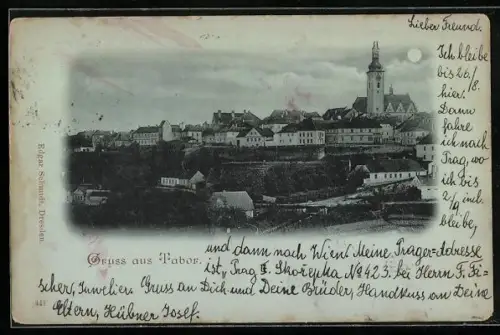 Lieber Freund.
Ich bleibe
bis 26/8.
hier.
Dann
fahre
ich nach
Prag, wo
ich bis
2/9 incl.
bleibe,
und dann nach Wien. Meine Prager-Adresse
ist, Prag II. No 423. bei Herrn F. Fi-
scher, Juwelier. Gruss an Dich und Deine Brüder, Handkuss an Deine
Eltern, Hübner Josef.
Gruss aus Tabor.
Edgar Schmidt, Dresden